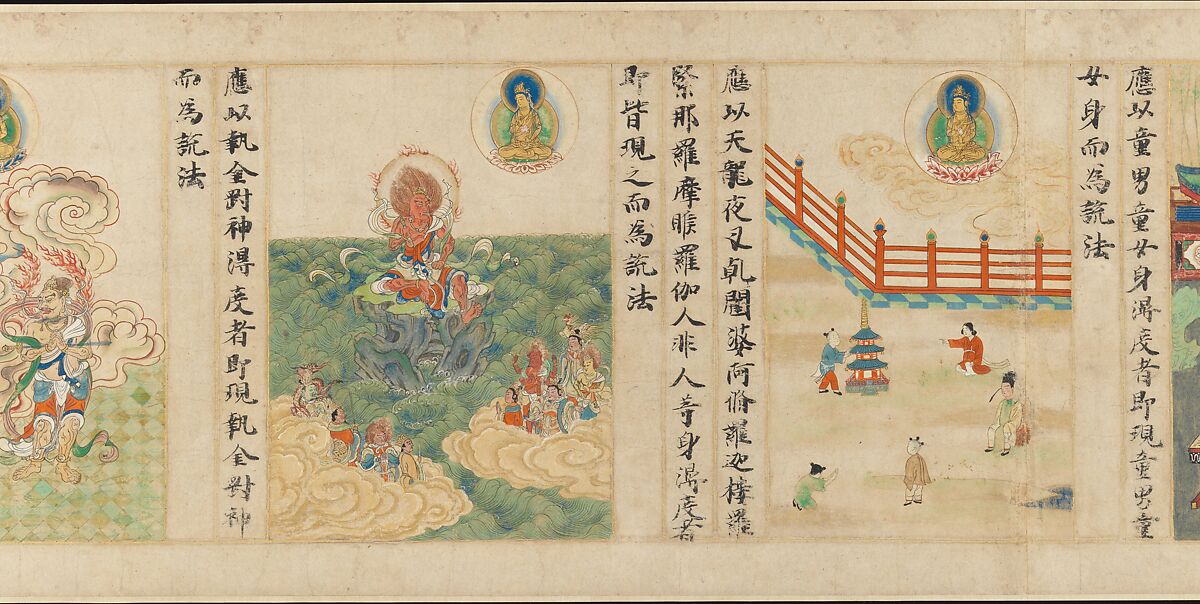 應以童男童女身淂度者即現童男童
女身而為説法
應以天龍夜叉乹闥婆阿脩羅迦樓羅
緊那羅摩睺羅伽人非人等身淂度者
即皆現之而為説法
應以執金剛神淂度者即現執金剛神
而為説法